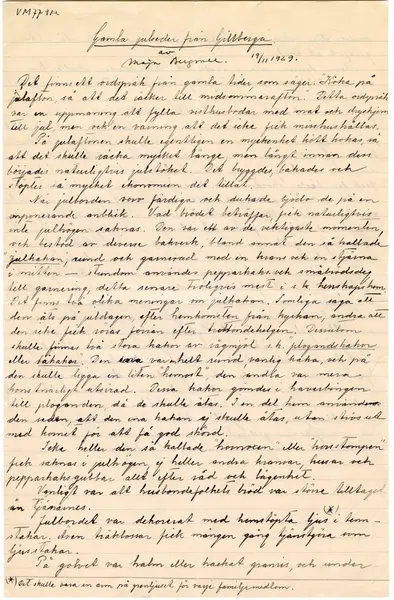 VM77 
Gamla julseder från Gillberga
av
Maja Bergman. 19/11 1929.
Det finns ett ordspråk från gamla tider som säger: Koka på
julafton, så att det räcker till midsommarafton. Detta ordspråk
var en uppmaning att fylla visthusbodar med mat och dryckjom
till jul, men ock en varning att det icke fick misshushållas.
På julaftonen skulle egentligen en myckenhet hött kokas, så
att det skulle räcka mycket länge men långt innan dess
började naturligtvis julstöket. Det bryggdes, bakades och
stöptes så mycket ekonomien det tillät.
När julborden voro färdiga och dukade tjodo de på en
imponerande anblick. Vad brödet beträffar, fick naturligtvis
inte julhögen saknas. Den var ett av de viktigaste momenten,
och bestod av diverse bakverk, bland annat den så kallade
julkakan, rund och garnerad med en krans och en stjärna
i mitten – stundom användes pepparkaks och småbrödsdeg
till garnering, detta senare troligtvis mest i s.k. herrskapshem.
Det finns två olika meningar om julkakan. Somliga säga att
den åts på juldagen, efter hemkomsten från kyrkan, andra att
den icke fick röras förrän efter trettondehelgen. Dessutom
skulle finnas två stora kakor av rågmjöl s.k. plogandskakor
eller såkakor. Den ena var helt rund vanlig kaka, och på
den skulle ligga en liten "hemost" den andra var mera
konstnärligt utsirad. Dessa kakor gömdes i havrebingen
till plöganden, då de skulle ätas. I en del hem användes
den sedan, att den ena kakan ej skulle ätas, utan strös ut
med kornet för att få god skörd.
Icke heller den så kallade "hornoxen" eller "husstompen"
fick saknas i julhögen, ej heller andra kransar, kusar och
pepparkaksgubbar allt efter råd och lägenhet.
Vanligt var att husbondefolkets bröd var större tilltaget
än tjänarnes.
Julbordet var dekorerat med hemstöpta ljus (*) i tenn-
stakar, även träklossar fick mången gång tjänstgöra som
ljusstakar.
På golvet var halm eller hackat granris, och under
*) Det skulle vara en arm på grenljuset för varje familjemedlem.